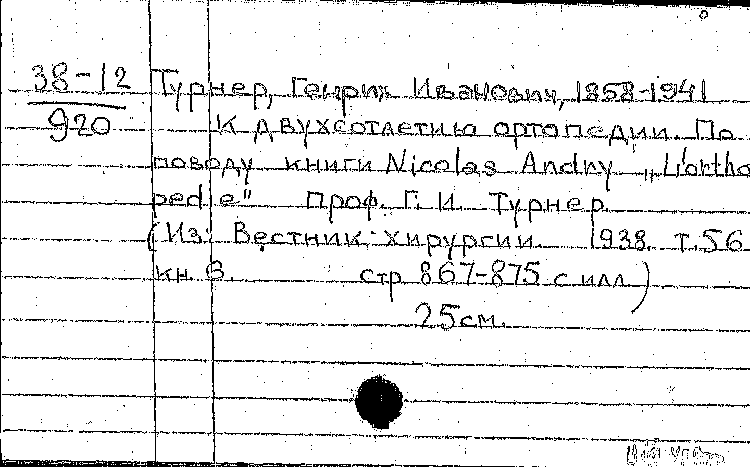 38-12
920
Турнер, Генрих Иванович, 1858-1941
К двухсотлетию ортопедии. По
поводу книги Nicolas Andry „L'ortho
pedie" проф. Г. И. Турнер.
(Из: Вестник хирургии. 1938. т. 56
кн. 6. стр. 867-875 с илл.)
25 см.